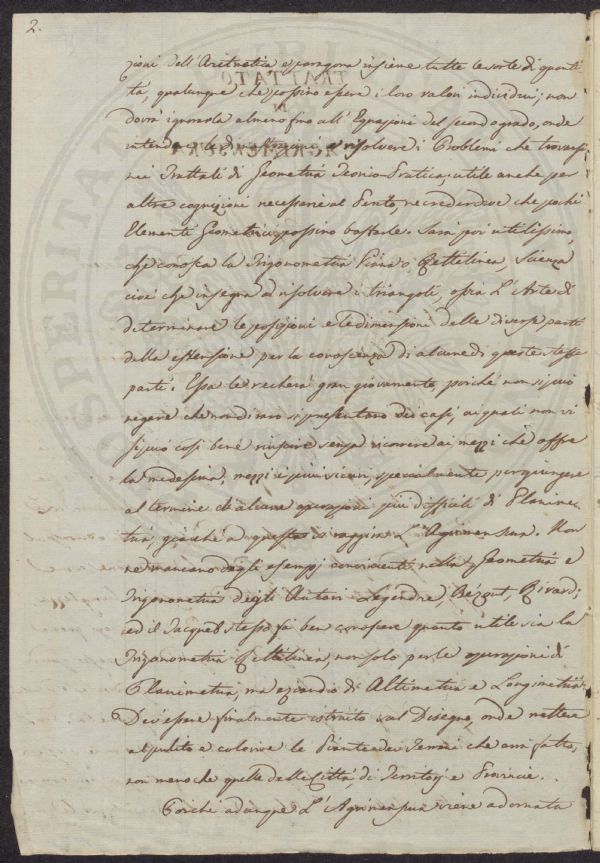 2.
zioni dell'Aritmetica e paragona insieme tutte le sorte di quanti-
tà, qualunque che possino essere i loro valori individui; non
dovrà ignorarla almeno fino all'Equazioni del secondo grado, onde
intendere le dimostrazioni e risolvere i Problemi che trovansi
nei Trattati di Geometria Teorico-Pratica, utile anche per
altre cognizioni necessarie al Perito, ne credendosi che pochi
Elementi Geometrici possino bastarle. Sarà poi utilissimo,
che conosca la Trigonometria Piana o Rettilinea, Scienza
cioè che insegna ad risolvere i triangoli, ossia L'Arte di
determinare le posizioni e le dimensioni delle diverse parti
della estensione per la conoscenza di alcune di queste stesse
parti. Essa le recherà gran giovamento, poiché non si può
negare che non di raro si presentano dei casi, ai quali non vi
si può così bene riuscire senza ricorrere ai mezzi che offre
la medesima, mezzi i più sicuri, specialmente per giungere
al termine di alcune operazioni più difficili di Planime-
tria, giacché a questa si raggira L'Agrimensura. Non
ne mancano degli esempj convincenti nella Geometria e
Trigonometria degli Autori Legendre, Bézout, Rivard;
ed il Jacquet stesso fa ben conoscere quanto utile sia la
Trigonometria Rettilinea, non solo per le operazioni di
Planimetria, ma eziandio di Altimetria e Longimetria.
Dev'essere finalmente istruito sul Disegno, onde mettere
al pulito e colorire le Piante dei Terreni che avrà fatto,
non meno che quelle delle Città, di Territorj e Provincie.
Poiché adunque L'Agrimensura viene adornata
TRATTATO
DI
AGRIMENSURA